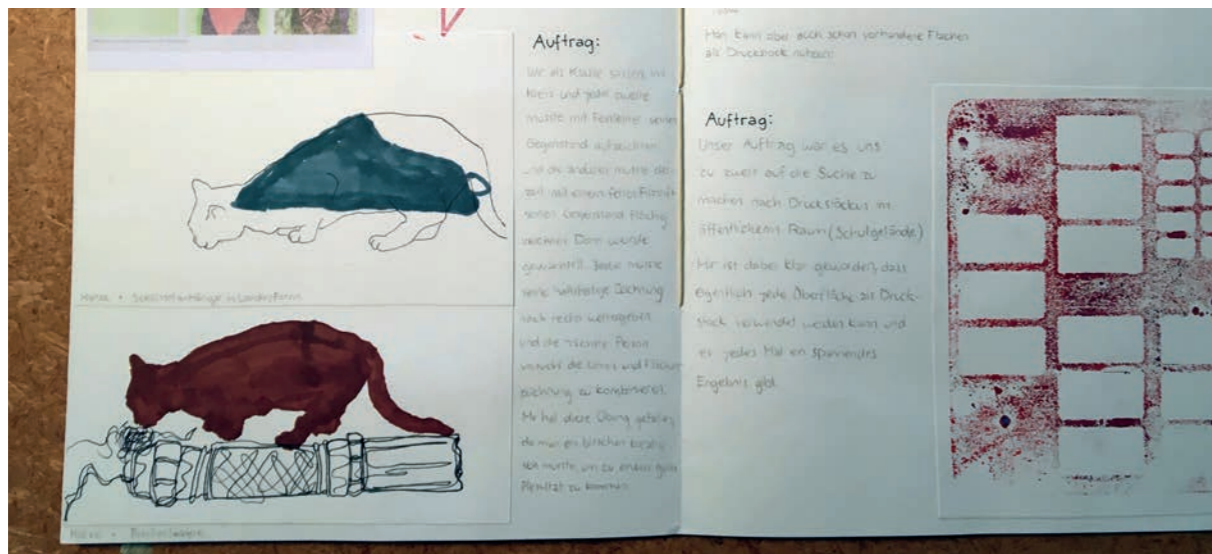 Auftrag:
Wir als Klasse saßen im
Kreis und jeder zweite
musste mit Fineliner seinen
Gegenstand aufzeichnen
und die anderen mussten
mit einem Filzstift
seinen Gegenstand flächig
zeichnen. Dann wurde
gewechselt. Jeder musste
seine Zeichnung
nach rechts weitergeben
und die nächste Person
versucht die Linien und Flächen
zeichnung zu kombinieren.
Mir hat diese Übung gefallen,
da man ein bisschen kreativ
sein musste, um zu einem guten
Resultat zu kommen.
Katze + Schlüsselanhänger in Landesform
Katze + Taschenlampe
Man kann aber auch schon vorhandene Flächen
als Druckstock nutzen.
Auftrag:
Unser Auftrag war es uns
zu zweit auf die Suche zu
machen nach Druckstöcken im
öffentlichem Raum (Schulgelände)
Mir ist dabei klar geworden, dass
eigentlich jede Oberfläche als Druck-
stock verwendet werden kann und
es jedes Mal ein spannendes
Ergebnis gibt.